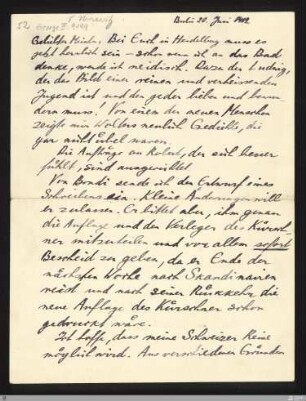 52
Berlin 20. Juni 1922
Geliebter Meister. Bei Euch in Heidelberg muss es
jetzt herrlich sein – schon wenn ich an das Bad
denke, werde ich neidisch. Dazu der Ludwig,
der das Bild einer reinen und verheissenden
Jugend ist und den jeder lieben und bewun-
dern muss! Von einem der neuen Menschen
zeigte mir Wolters neulich Gedichte, die
gar nicht übel waren.
Die Aufträge an Robert, der sich besser
fühlt, sind ausgerichtet.
Von Bondi sende ich den Entwurf eines
Schreibens ein. Kleine Änderungen will
er zulassen. Er bittet aber, ihm genau
die Auflage und den Verleger des Kürsch-
ner mitzuteilen und vor allem sofort
Bescheid zu geben, da er Ende der
nächsten Woche nach Skandinavien
reist und nach seiner Rückkehr die
neue Auflage des Kürschner schon
gedruckt wäre.
Ich hoffe, dass meine Schweizer Reise
möglich wird. Aus verschiedenen Gründen